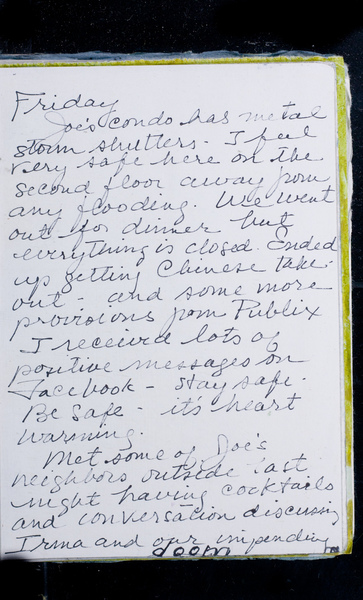 Friday
Joe's condo has metal
storm shutters. I feel
very safe here on the
second floor away from
any flooding. We went
out for dinner but
everything is closed. Ended
up getting Chinese take-
out - and some more
provisions from Publix
I received lots of
positive messages on
Facebook - Stay safe.
Be Safe - it's heart
warming.
Met some of Joe's
neighbors outside last
night having cocktails
and conversation discussing
Irma and our impending
doom